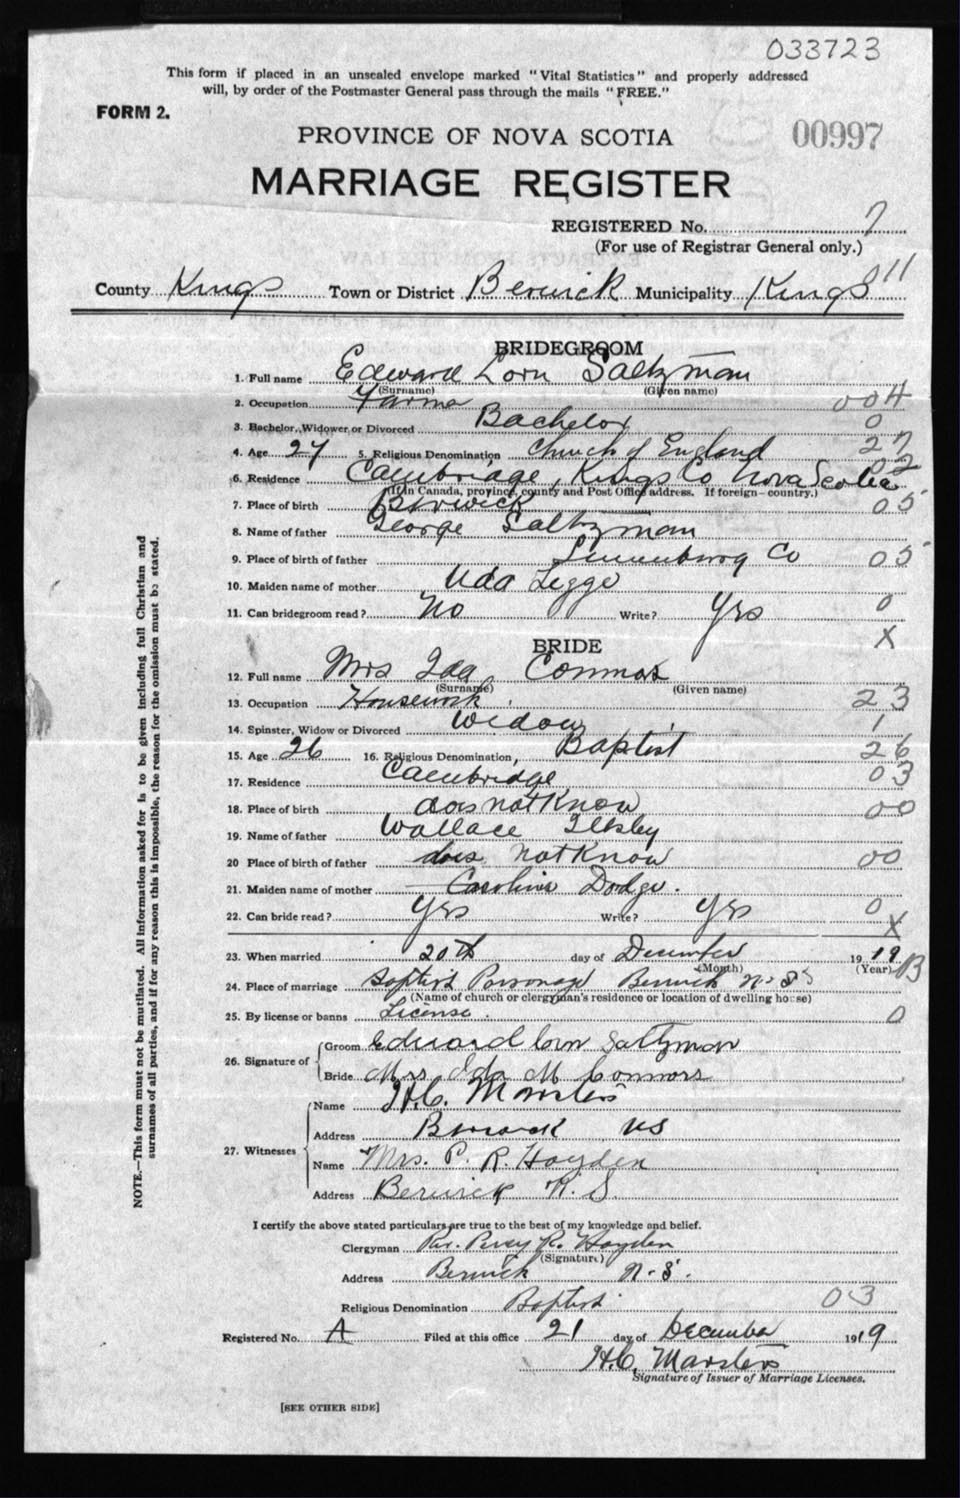 033723
This form if placed in an unsealed envelope marked "Vital Statistics" and properly addressed
will, by order of the Postmaster General pass through the mails "FREE."
FORM 2.
PROVINCE OF NOVA SCOTIA
00997
MARRIAGE REGISTER
REGISTERED No. 7
(For use of Registrar General only.)
011
County Kings Town or District Berwick Municipality Kings
BRIDEGROOM
1. Full name Edward Lorn Saltzman
(Surname) (Given name)
2. Occupation Farmer 004
3. Bachelor, Widower, or Divorced Bachelor 0
4. Age 27 5. Religious Denomination Church of England 27
02
6. Residence Cambridge, Kings Co Nova Scotia
(If in Canada, province, county and Post Office address. If foreign—country.)
7. Place of birth Berwick 05
8. Name of father George Saltzman
9. Place of birth of father Lunenburg Co 05
10. Maiden name of mother Uda Legge
11. Can bridegroom read? No Write? Yrs 0
X
BRIDE
12. Full name Mrs Ida Connors
(Surname) (Given name)
13. Occupation Housework 23
14. Spinster, Widow or Divorced Widow 1
15. Age 26 16. Religious Denomination, Baptist 26
17. Residence Cambridge 03
18. Place of birth does not Know 00
19. Name of father Wallace
20 Place of birth of father does not Know 00
21. Maiden name of mother Caroline Dodge.
22. Can bride read? Yrs Write? Yrs 0
X
23. When married 20th day of December 1919
(Month) (Year) B
24. Place of marriage Baptist Parsonage Berwick N.S
(Name of church or clergyman's residence or location of dwelling house)
25. By license or banns License. 0
26. Signature of Groom Edward Lorn Saltzman
Bride Mrs Ida M Connors
27. Witnesses Name H.C. Marsters
Address Berwick NS
Name Mrs. P. R. Hayden
Address Berwick N.S.
I certify the above stated particulars are true to the best of my knowledge and belief.
Clergyman Rev. Percy R. Hayden
(Signature)
Address Berwick N.S.
Religious Denomination Baptist 03
Registered No. A Filed at this office 21 day of December 1919
H.C. Marsters
Signature of Issuer of Marriage Licenses.
[SEE OTHER SIDE]
NOTE.—This form must not be mutilated. All information asked for is to be given including full Christian and
surnames of all parties, and if for any reason this is impossible, the reason for the omission must be stated.